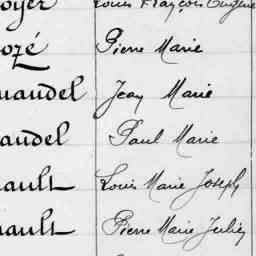 oyer Louis François Eugène
ozé Pierre Marie
audel Jean Marie
audel Paul Marie
ault Louis Marie Joseph
ault Pierre Marie Julien